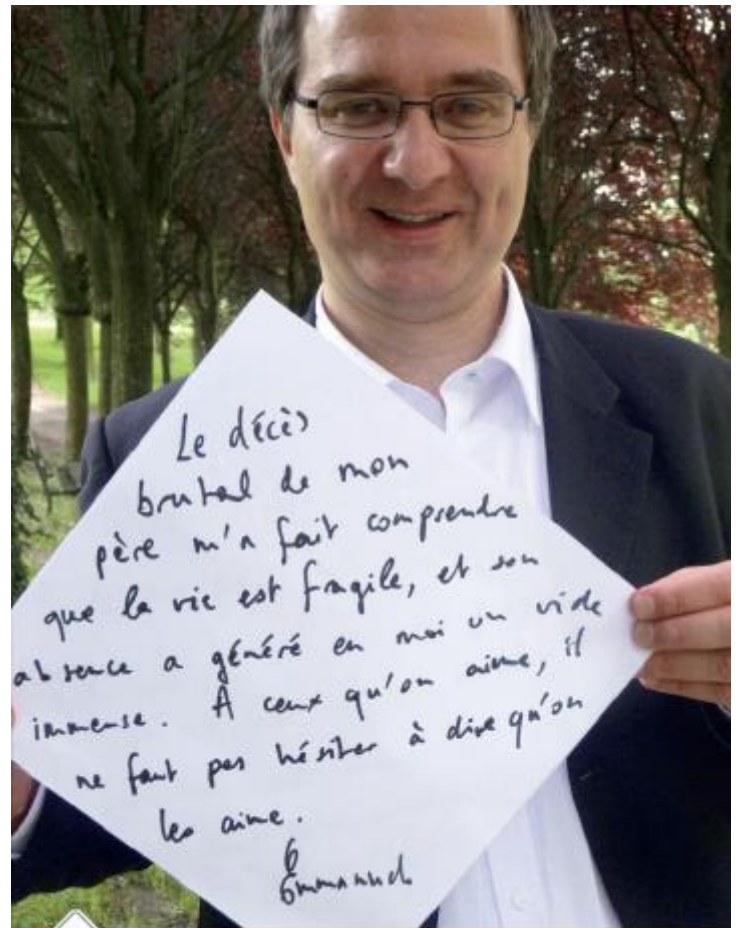 Le décès
brutal de mon
père m'a fait comprendre
que la vie est fragile, et son
absence a généré en moi un vide
immense. A ceux qu'on aime, il
ne faut pas hésiter à dire qu'on
les aime.
Emmanuel